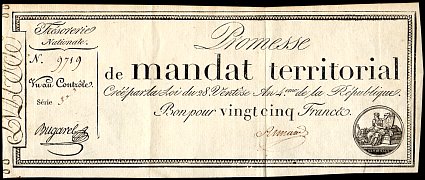 Trésorerie
Nationale.
N. 9719
Vu au Contrôle
Série 3
Bugarel
Promesse
de mandat territorial
Créé par la Loi du 28 Ventôse An 4.eme de la République.
Bon pour vingt cinq Francs.